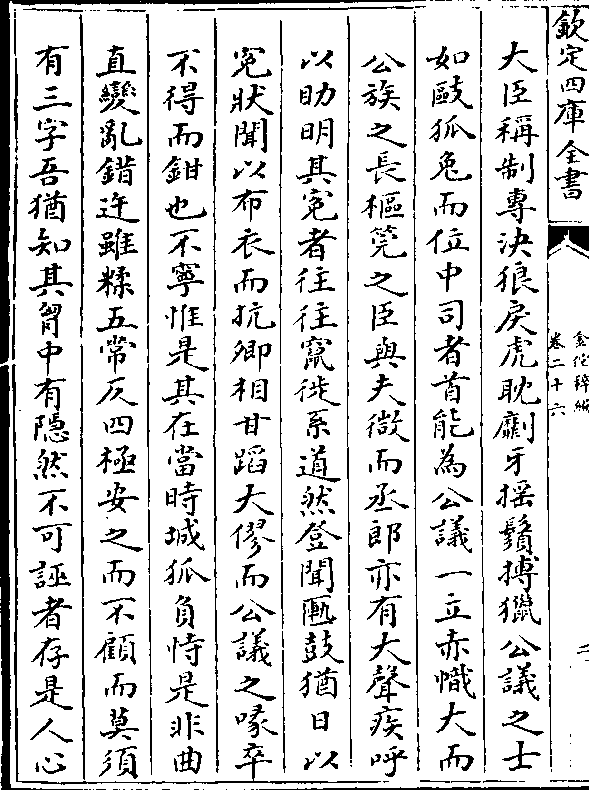 欽定四庫全書
金佗稡編
卷二十六
二
大臣稱制專決狼戾虎耽劘牙揺鬚搏獵公議之士
如敺狐兔而位中司者首能為公議一立赤幟大而
公族之長樞筦之臣與夫微而丞郎亦有大聲疾呼
以助明其寃者往往竄徙系道然登聞匭鼓猶日以
寃狀聞以布衣而抗卿相甘蹈大僇而公議之喙卒
不得而鉗也不寧惟是其在當時城狐負恃是非曲
直變亂錯迕雖糅五常反四極安之而不顧而莫須
有三字吾猶知其胷中有隠然不可誣者存是人心